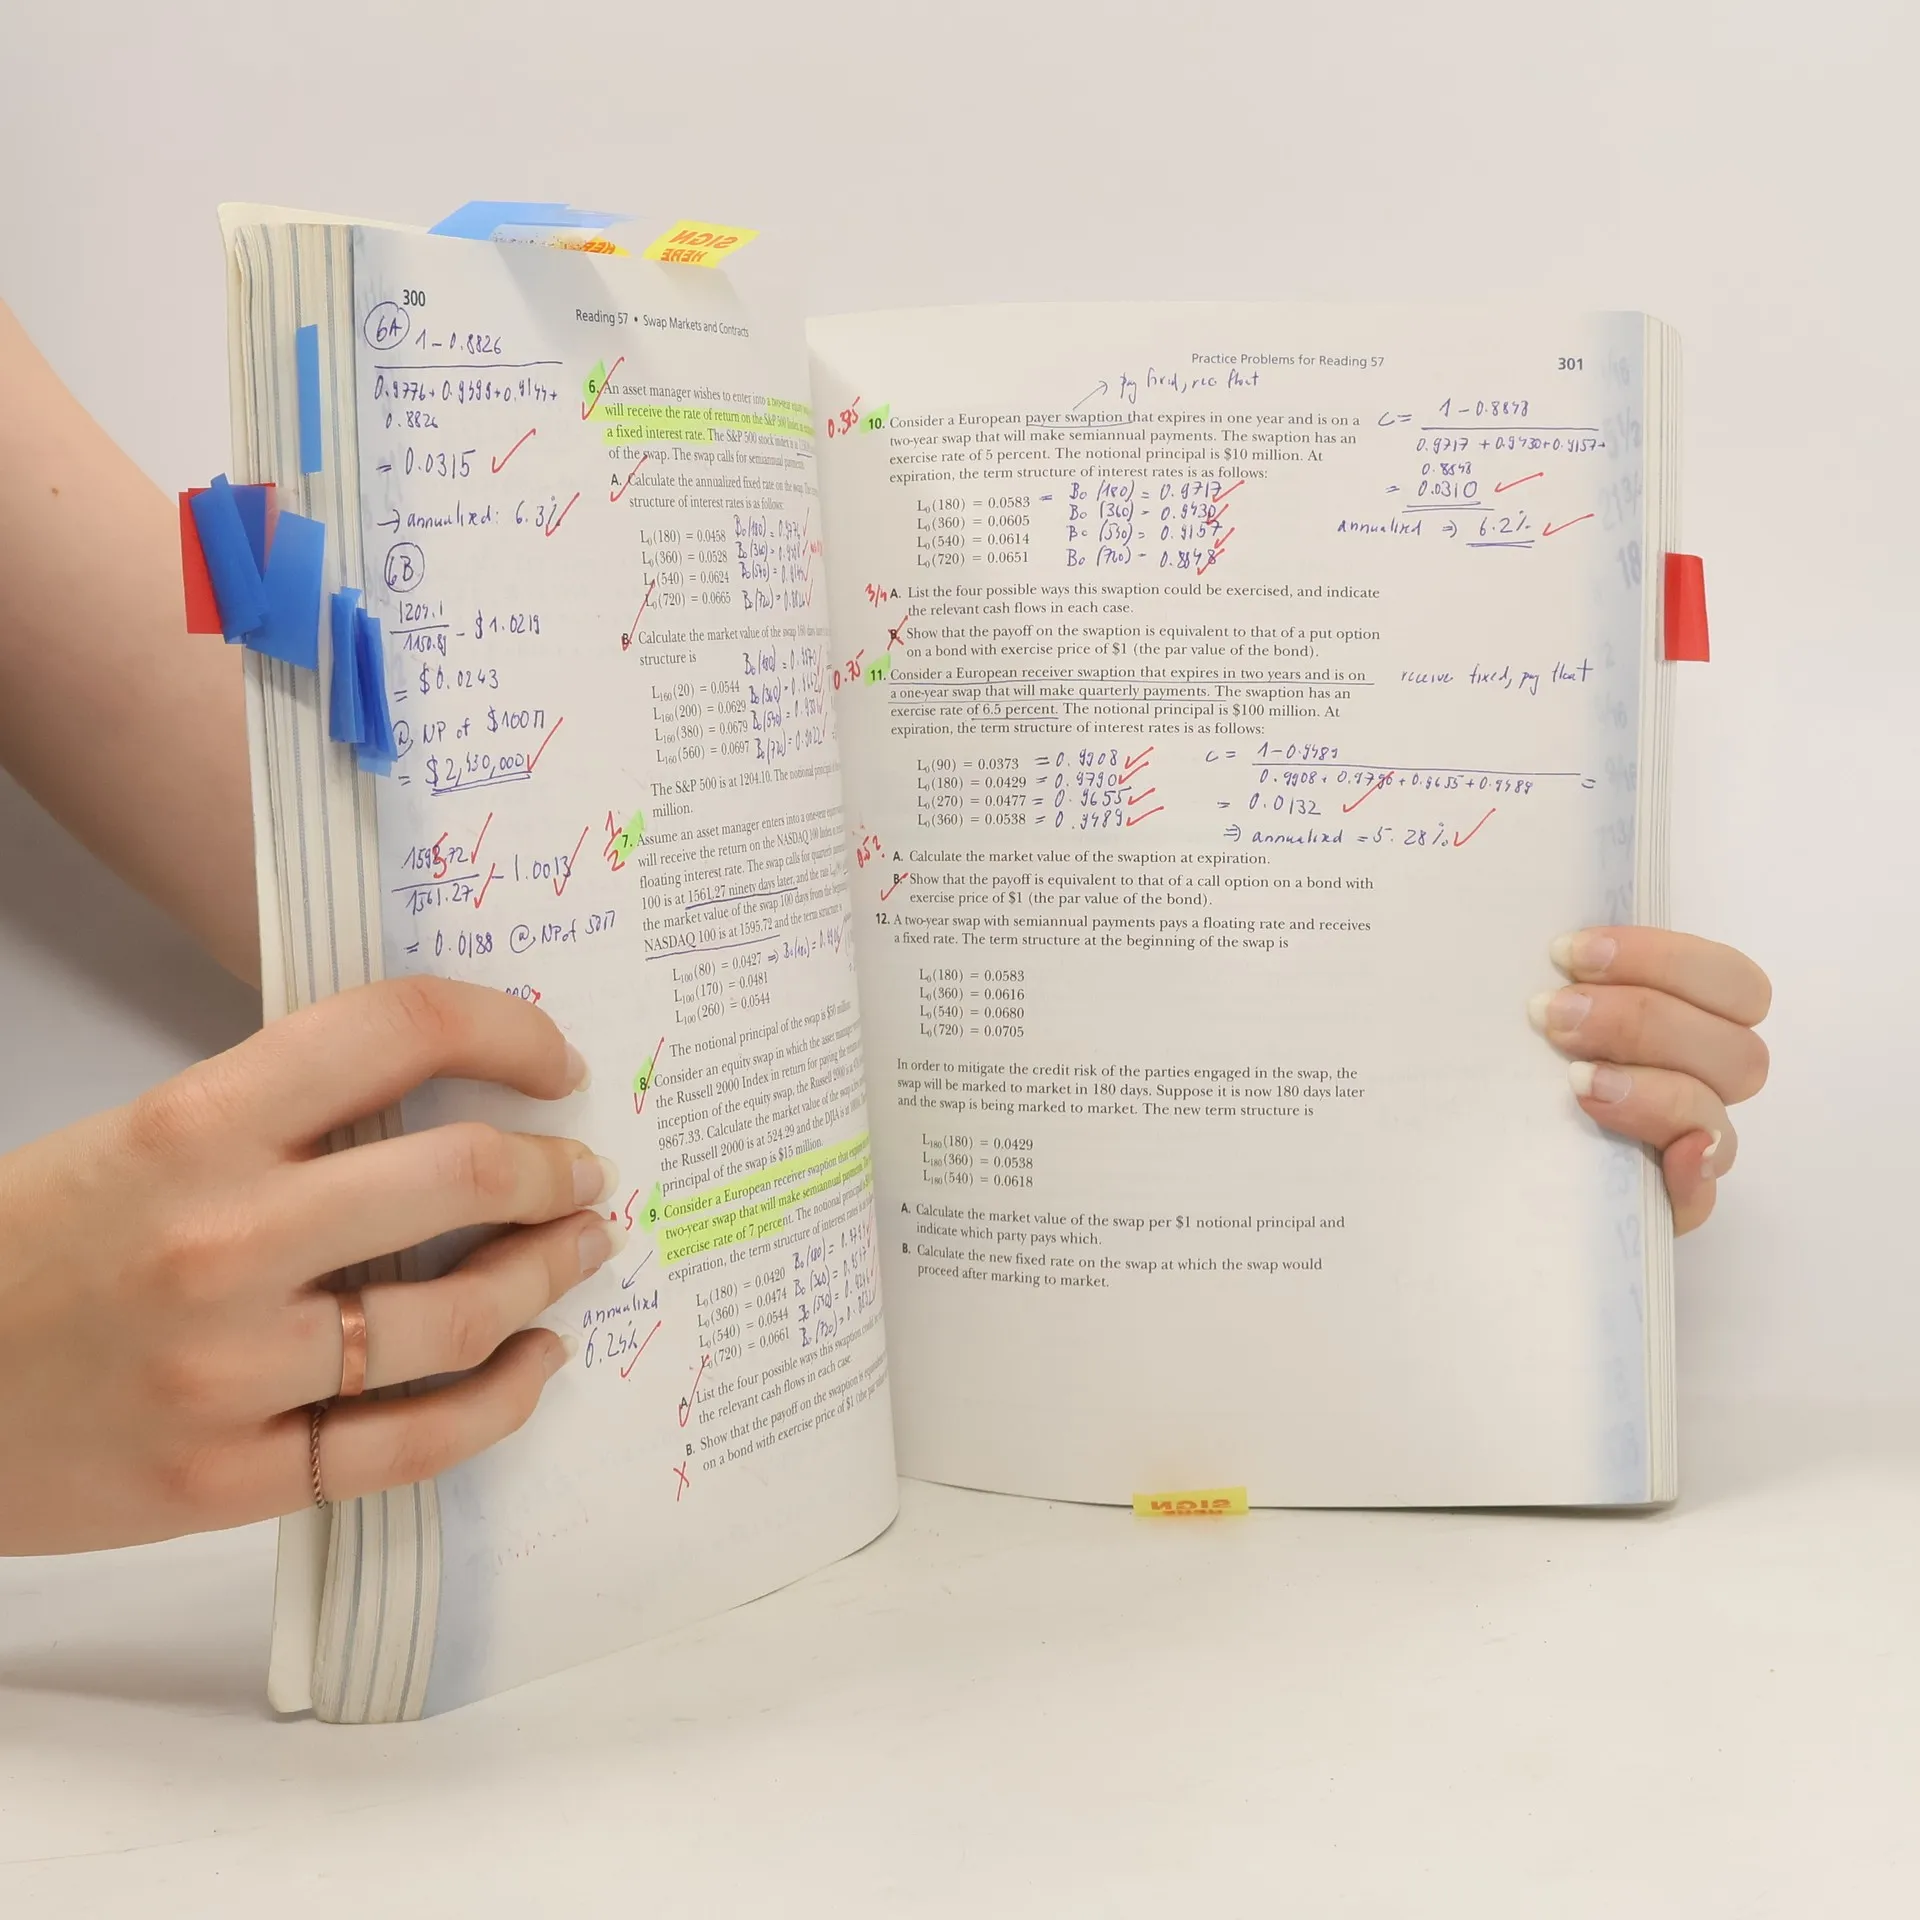 SIGN
HERE
300
Reading 57 • Swap Markets and Contracts
6A
1 - 0.8826
0.9776+ 0.9499+0.9144+
0.8826
= 0.0315
→ annualized: 6.3%
6B
1204.1
- $1.0219
= $0.0243
@ NP of $100M
= $2,430,000
1595.72
1561.27
- 1.0013
= 0.0188 @ NP of 50M
6. An asset manager wishes to enter into a two-year equity
will receive the rate of return on the S&P 500 Index
a fixed interest rate. The S&P 500 stock index is
of the swap. The swap calls for semiannual payments.
A. Calculate the annualized fixed rate on the swap. The
structure of interest rates is as follows:
L0(180) = 0.0458
L0(360) = 0.0528
L0(540) = 0.0624
L0(720) = 0.0665
B. Calculate the market value of the swap 160 days
structure is
L160(20) = 0.0544
L160(200) = 0.0629
L160(380) = 0.0679
L160(560) = 0.0697
The S&P 500 is at 1204.10. The notional principal
million.
1/2
7. Assume an asset manager enters into a one-year
will receive the return on the NASDAQ 100 Index
floating interest rate. The swap calls for quarterly
100 is at 1561.27 ninety days later, and the rate
the market value of the swap 100 days from the
NASDAQ 100 is at 1595.72 and the term structure
L100(80) = 0.0427
L100(170) = 0.0481
L100(260) = 0.0544
The notional principal of the swap is $50 million.
8. Consider an equity swap in which the asset manager
the Russell 2000 Index in return for paying the return
inception of the equity swap, the Russell 2000 is at
9867.33. Calculate the market value of the swap
the Russell 2000 is at 524.29 and the DJIA is at
principal of the swap is $15 million.
9. Consider a European receiver swaption that expires
two-year swap that will make semiannual payments. The
exercise rate of 7 percent. The notional principal
expiration, the term structure of interest rates is as follows:
L0(180) = 0.0420
L0(360) = 0.0474
L0(540) = 0.0544
L0(720) = 0.0661
annualized
6.25%
A. List the four possible ways this swaption could
the relevant cash flows in each case.
B. Show that the payoff on the swaption is equivalent
on a bond with exercise price of $1 (the par value
Practice Problems for Reading 57
301
→ pay fixed, rec float
10. Consider a European payer swaption that expires in one year and is on a
two-year swap that will make semiannual payments. The swaption has an
exercise rate of 5 percent. The notional principal is $10 million. At
expiration, the term structure of interest rates is as follows:
L0(180) = 0.0583 = B0 (180) = 0.9717
L0(360) = 0.0605 B0 (360) = 0.9430
L0(540) = 0.0614 B0 (540) = 0.9157
L0(720) = 0.0651 B0 (720) = 0.8848
C = 1 - 0.8848
0.9717 + 0.9430+0.9157+
0.8848
= 0.0310
annualized ⇒ 6.2%
3/4 A. List the four possible ways this swaption could be exercised, and indicate
the relevant cash flows in each case.
B. Show that the payoff on the swaption is equivalent to that of a put option
on a bond with exercise price of $1 (the par value of the bond).
0.75
11. Consider a European receiver swaption that expires in two years and is on
a one-year swap that will make quarterly payments. The swaption has an
exercise rate of 6.5 percent. The notional principal is $100 million. At
expiration, the term structure of interest rates is as follows:
receive fixed, pay float
L0(90) = 0.0373 = 0.9908
L0(180) = 0.0429 = 0.9790
L0(270) = 0.0477 = 0.9655
L0(360) = 0.0538 = 0.9489
C = 1-0.9489
0.9908 + 0.9790 + 0.9655 + 0.9489 =
= 0.0132
⇒ annualized = 5.28%
A. Calculate the market value of the swaption at expiration.
B. Show that the payoff is equivalent to that of a call option on a bond with
exercise price of $1 (the par value of the bond).
12. A two-year swap with semiannual payments pays a floating rate and receives
a fixed rate. The term structure at the beginning of the swap is
L0(180) = 0.0583
L0(360) = 0.0616
L0(540) = 0.0680
L0(720) = 0.0705
In order to mitigate the credit risk of the parties engaged in the swap, the
swap will be marked to market in 180 days. Suppose it is now 180 days later
and the swap is being marked to market. The new term structure is
L180(180) = 0.0429
L180(360) = 0.0538
L180(540) = 0.0618
A. Calculate the market value of the swap per $1 notional principal and
indicate which party pays which.
B. Calculate the new fixed rate on the swap at which the swap would
proceed after marking to market.
SIGN
HERE